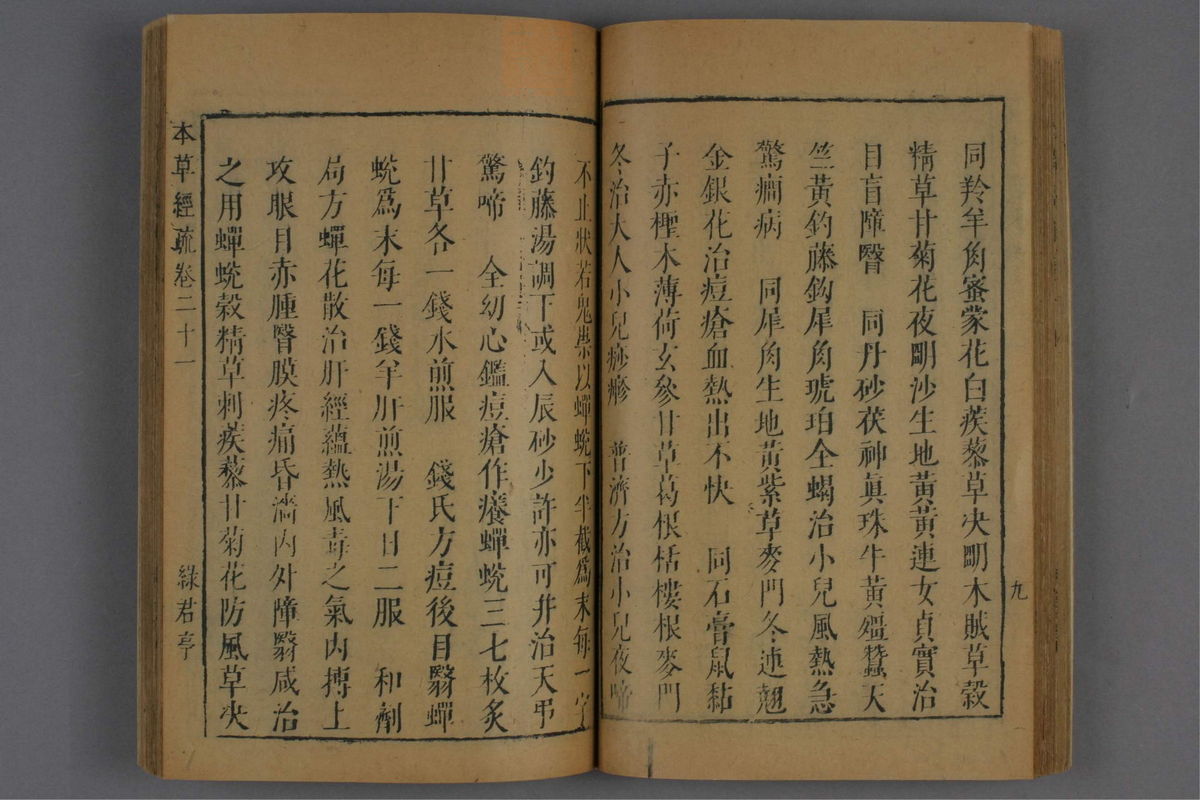 同羚羊角蜜蒙花白蒺藜草决明木賊草穀
精草甘菊花夜明沙生地黃黃連女貞實治
目盲障瞖　同丹砂茯神眞珠牛黃殭蠶天
竺黃釣藤鈎犀角琥珀全蝎治小兒風熱急
驚癎病　同犀角生地黃紫草麥門冬連翹
金銀花治痘瘡血熱出不快　同石膏鼠黏
子赤檉木薄荷玄參甘草葛根栝樓根麥門
冬治大人小兒痧疹　普濟方治小兒夜啼
九
不止狀若鬼祟以蟬蛻下半截爲末每一字
釣藤湯調下或入辰砂少許亦可并治天弔
驚啼　全幼心鑑痘瘡作癢蟬蛻三七枚炙
甘草各一錢水煎服　錢氏方痘後目翳蟬
蛻爲末每一錢羊肝煎湯下日二服　和劑
局方蟬花散治肝經蘊熱風毒之氣内搏上
攻眼目赤腫瞖膜疼痛昏濇内外障翳咸治
之用蟬蛻穀精草刺蒺藜甘菊花防風草决
本草經疏卷二十一
綠君亭